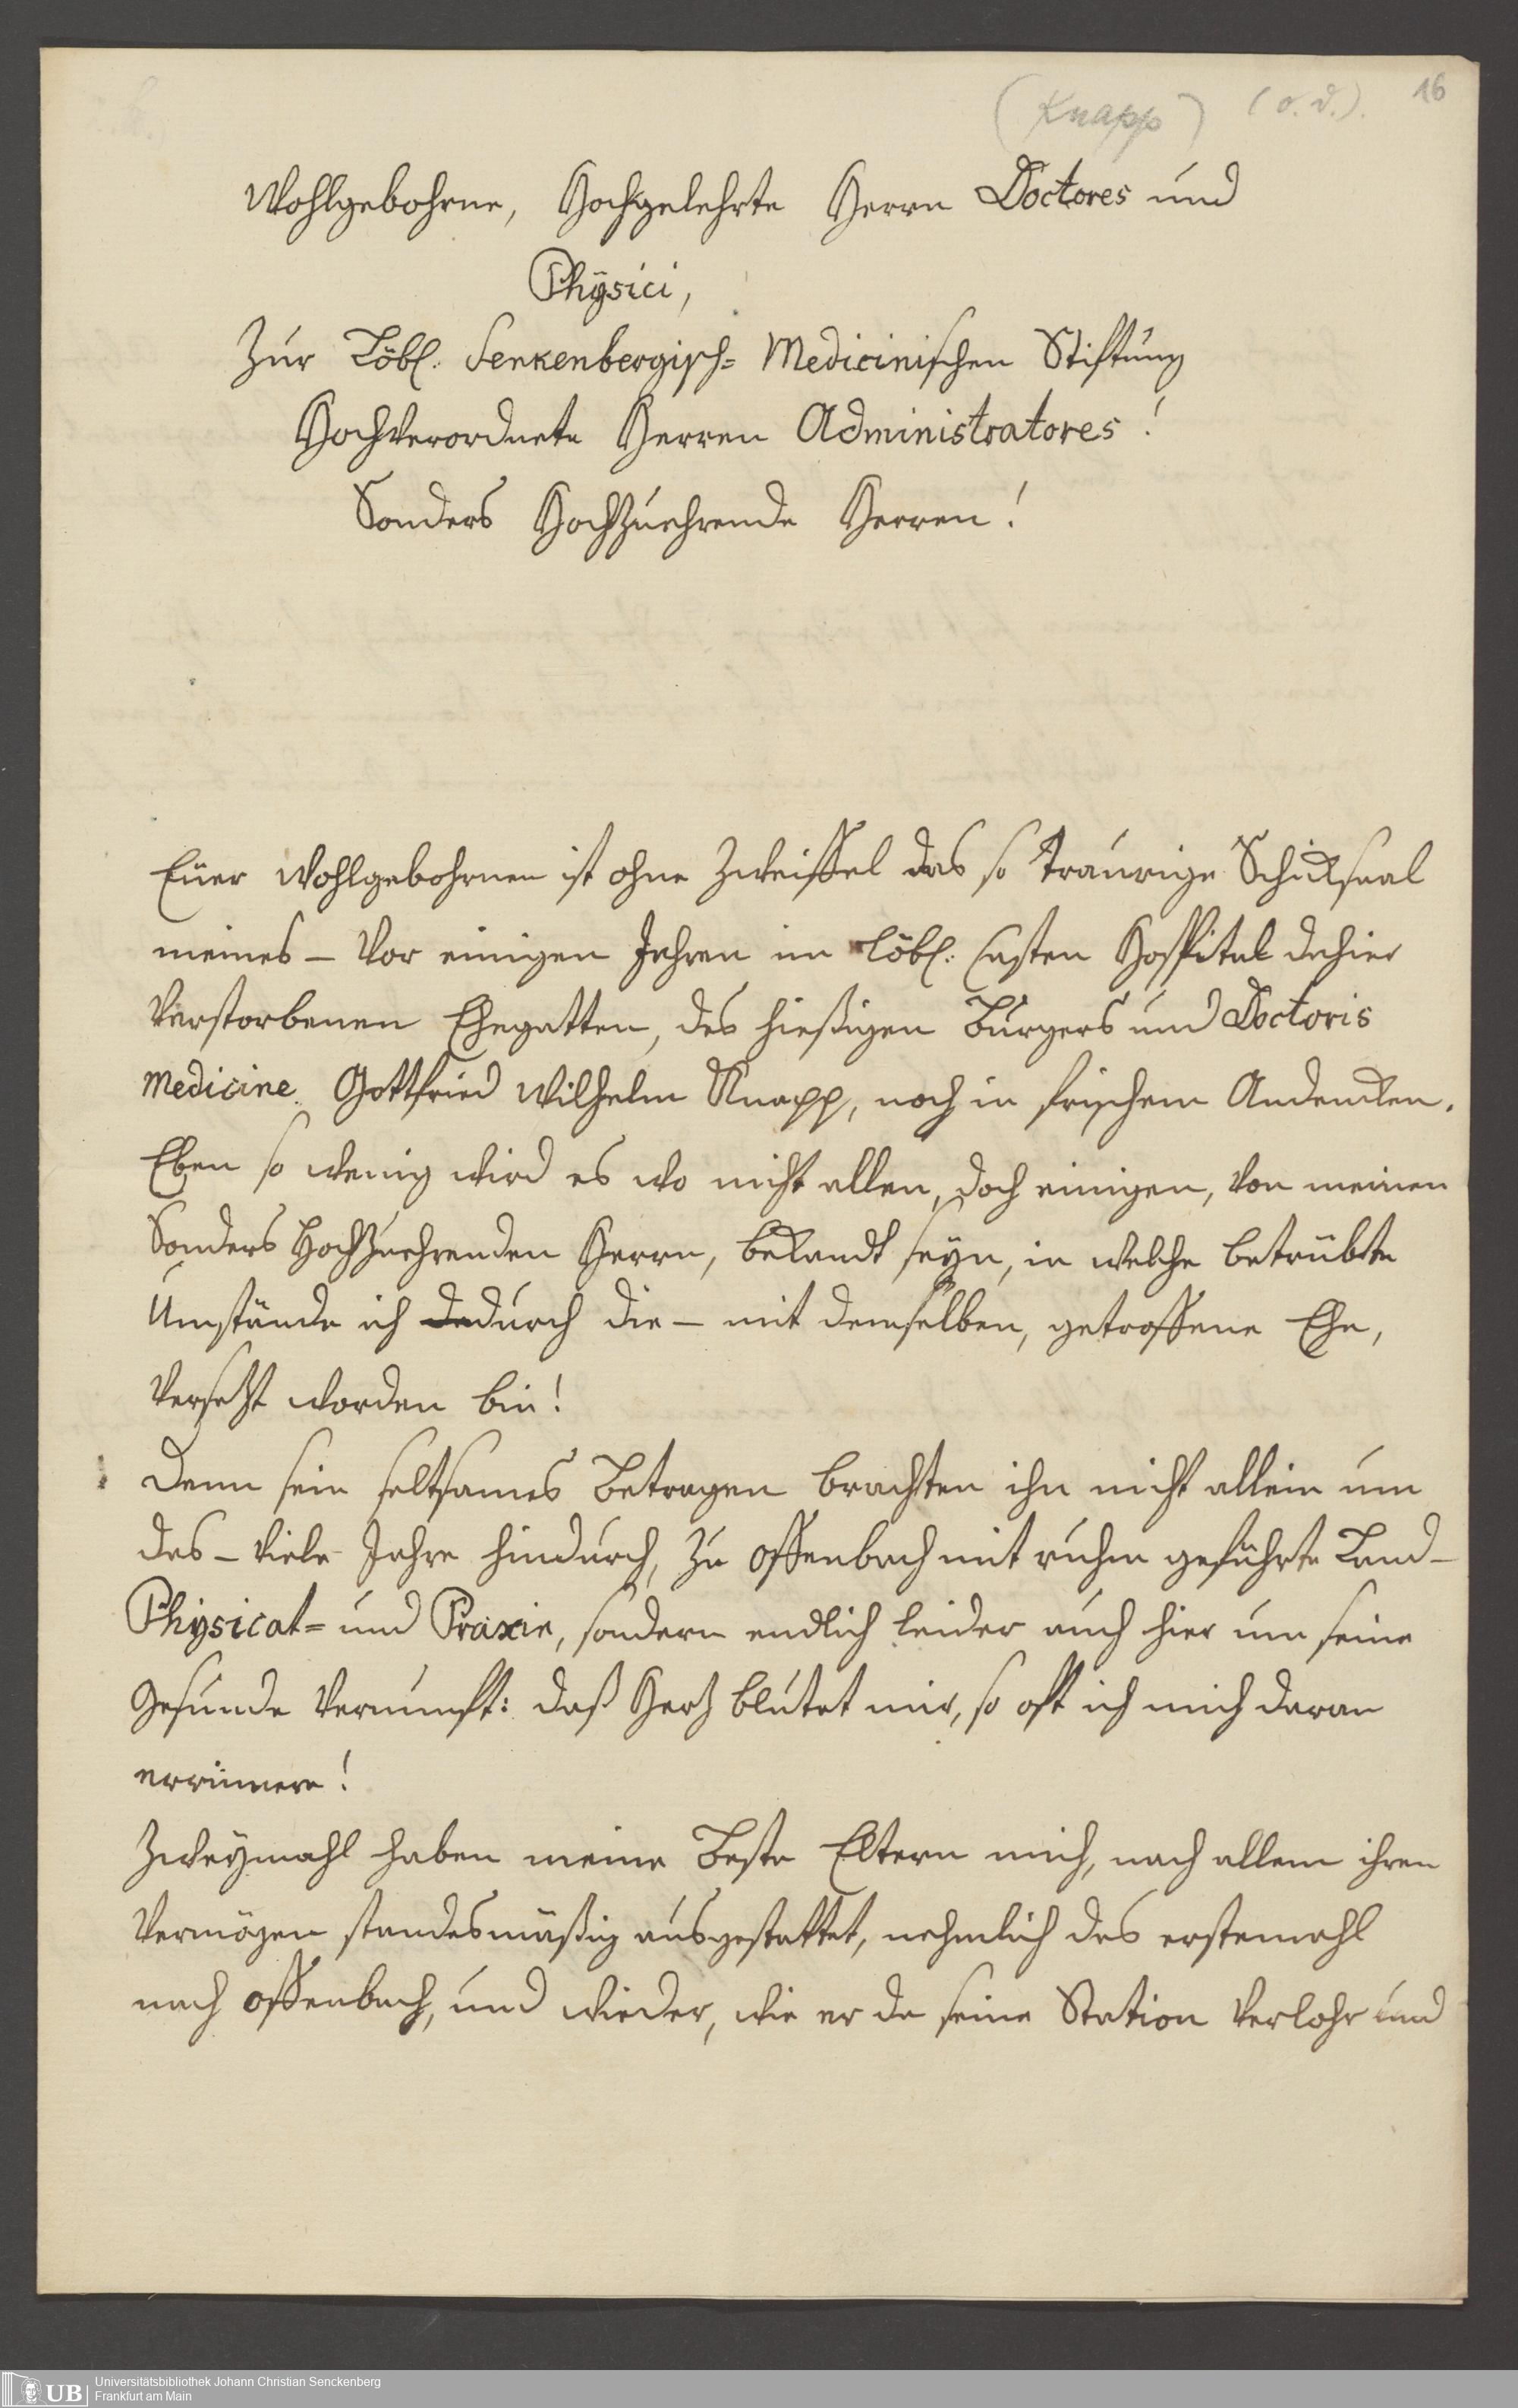 (Knapp) (o. d.). 16
Wohlgebohrne, Hochgelehrte Herrn Doctores und
Physici,
Zur Löbl. Senkenbergisch= Medicinischen Stiftung
Hochverordnete Herren Administratores!
Sonders Hochzuehrende Herren!
Euer Wohlgebohrnen ist ohne Zweiffel das so traurige Schicksaal
meines – vor einigen Jahren im Löbl. Casten Hospital dahier
verstorbenen Ehegatten, des hießigen Burgers und Doctoris
Medicine Gottfried Wilhelm Knapp, noch in frischem Andencken.
Eben so wenig wird es wo nicht allen, doch einigen, von meinen
Sonders Hochzuehrenden Herrn, bekandt seyn, in welche betrübte
Umstände ich dadurch die – mit demselben, getroffene Ehe,
versetzt worden bin!
Denn sein seltsames Betragen brachten ihn nicht allein um
das – viele Jahre hindurch, zu Offenbach mit ruhm geführte Land–
Physicat= und Praxin, sondern endlich leider auch hier um seine
Gesunde Vernunft: daß Hertz blutet mir, so oft ich mich daran
errinnere!
Zweymahl haben meine Beste Eltern mich, nach allem ihren
Vermögen standesmäßig ausgestattet, nehmlich das erstemahl
nach Offenbach, und wieder, wie er da seine Station verlohr und
Universitätsbibliothek Johann Christian Senckenberg
UB Frankfurt am Main